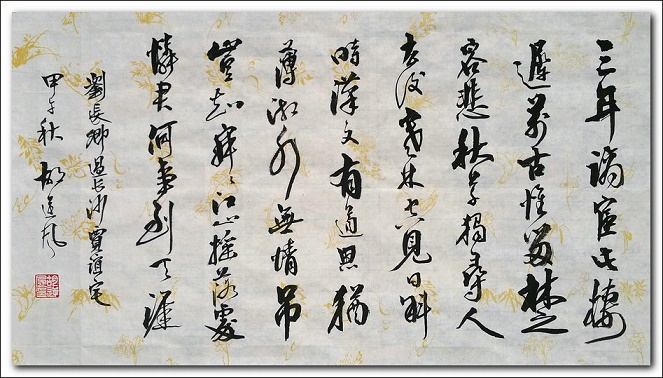 三年謫宦此棲
遲萬古惟留楚
客悲秋草獨尋人
去後寒林空見日斜
時漢文有道恩猶
薄湘水無情吊
豈知寂〻江山摇落處
憐君何事到天涯
劉長卿過長沙賈誼宅
甲午秋 胡